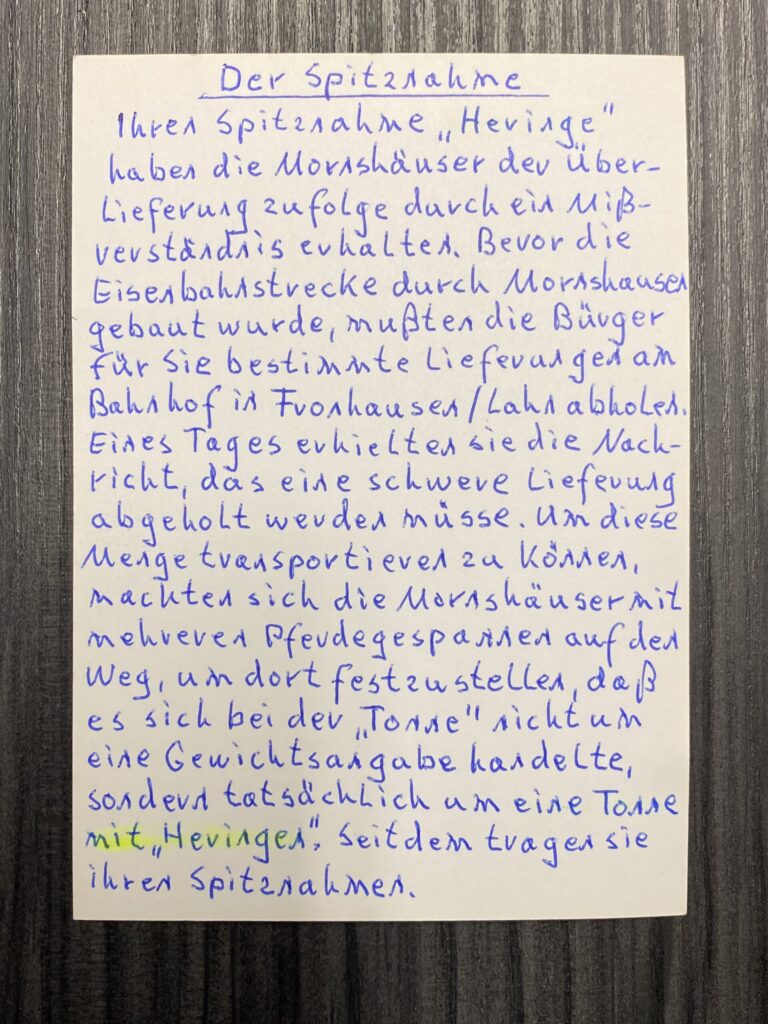 Der Spitznahme
Ihren Spitznahme „Heringe"
haben die Mornshäuser der Über-
lieferung zufolge durch ein Miß-
verständnis erhalten. Bevor die
Eisenbahnstrecke durch Mornshausen
gebaut wurde, mußten die Bürger
für Sie bestimmte Lieferungen am
Bahnhof in Fronhausen/Lahn abholen.
Eines Tages erhielten sie die Nach-
richt, das eine schwere Lieferung
abgeholt werden müsse. Um diese
Menge transportieren zu können,
machten sich die Mornshäuser mit
mehreren Pferdegespannen auf den
Weg, um dort festzustellen, daß
es sich bei der „Tonne" nicht um
eine Gewichtsangabe handelte,
sondern tatsächlich um eine Tonne
mit „Heringen". Seitdem tragen sie
ihren Spitznahmen.